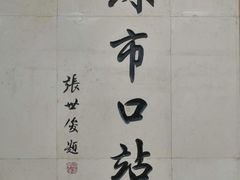 市口站
張世俊題